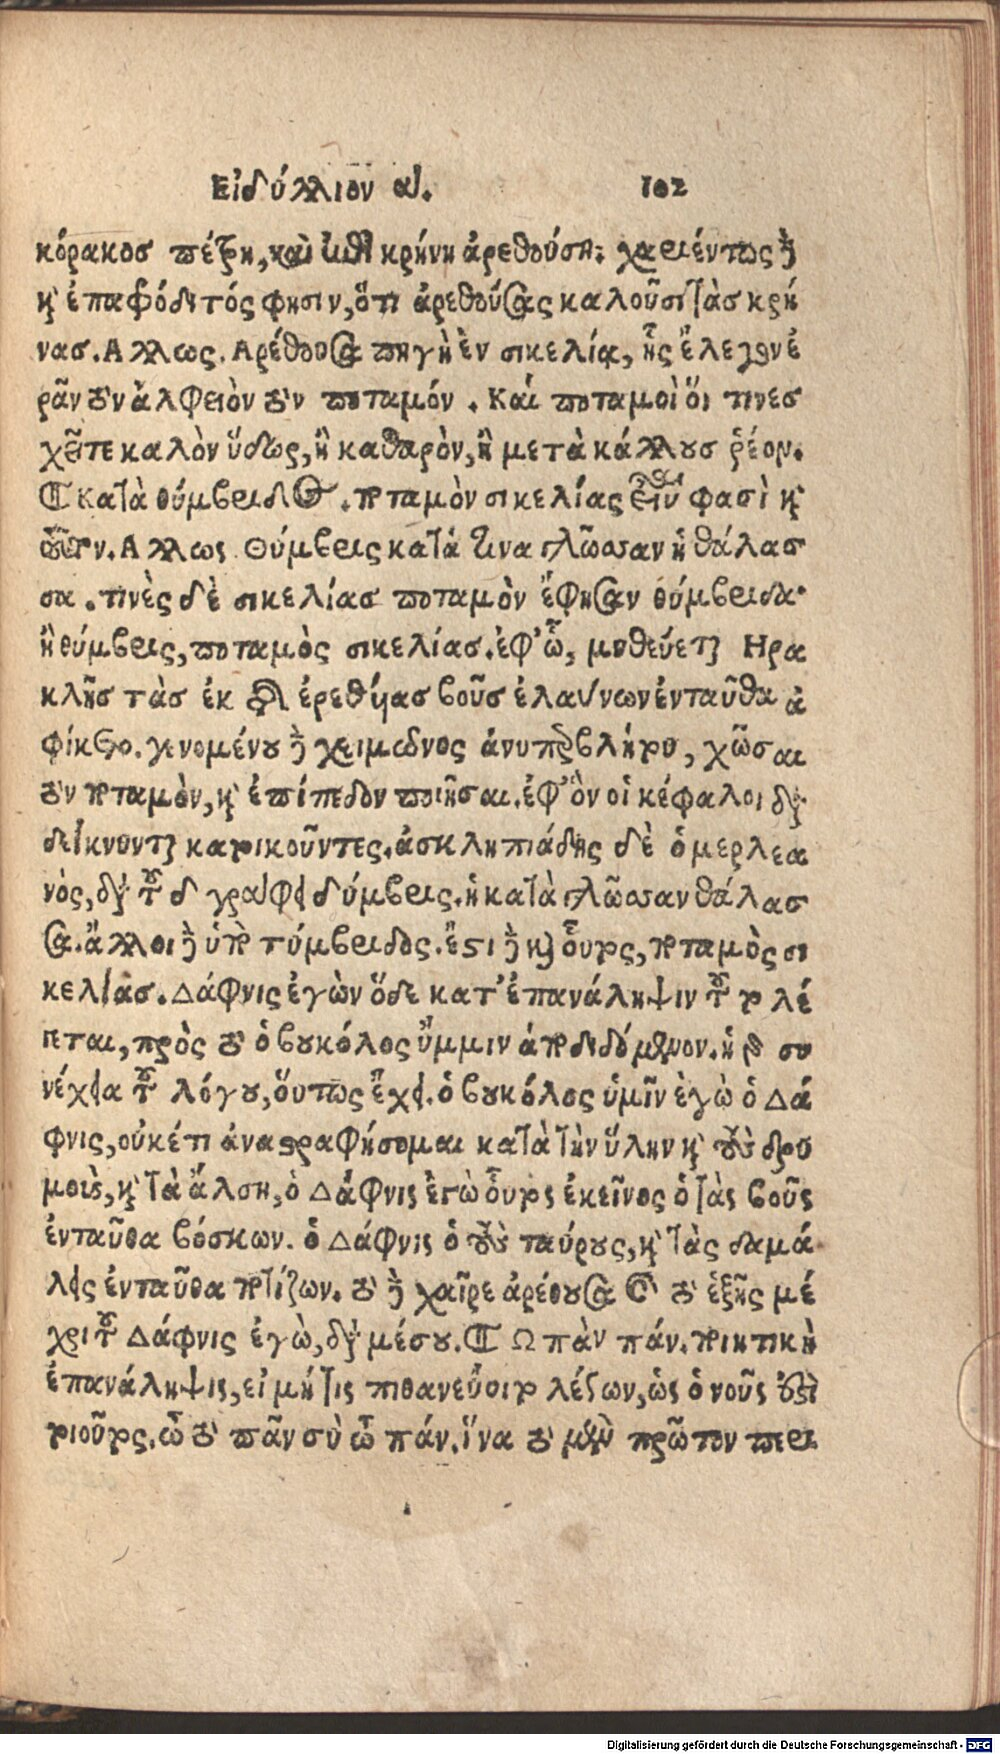 Εἰδύλλιον α΄. 102
κόρακος πέτρῃ, καὶ ἐπὶ κρήνῃ ἀρεθούσῃ: χαριέντως δὲ
καὶ ἐπαφρόδιτός φησιν, ὅτι ἀρεθούσας καλοῦσι τὰς κρή
νας. Αλλως. Αρέθουσα πηγὴ ἐν σικελίᾳ, ἧς ἔλεγον ἐ
ρᾶν τὸν ἀλφειὸν τὸν ποταμόν. Καὶ ποταμοὶ ὅι τινες
χεῖτε καλὸν ὕδωρ, ἢ καθαρὸν, ἢ μετὰ κάλλους ῥέον.
¶ Κατὰ θύμβριδος. ποταμὸν σικελίας εἶναι φασὶ καὶ
τοῦτον. Αλλως Θύμβρις κατά τινα γλῶσσαν ἡ θάλασ
σα. τινὲς δὲ σικελίας ποταμὸν ἔφησαν θύμβριδα·
ἢ θύμβρις, ποταμὸς σικελίας. ἐφ' ᾧ, μυθεύεται Ηρα
κλῆς τὰς ἐκ τῆς ἐρεθύιας βοῦς ἐλαύνων ἐνταῦθα ἀ
φίκετο. γενομένου δὲ χειμῶνος ἀνυπερβλήτου, χῶσαι
τὸν ποταμὸν, καὶ ἐπίπεδον ποιῆσαι. ἐφ' ὃν οἱ κέφαλοι δια
δείκνυνται καρικοῦντες. ἀσκληπιάδης δὲ ὁ μερλεα
νὸς, διὰ τοῦ δ γράφει δύμβρις. ἡ κατὰ γλῶσσαν θάλασ
σα. ἄλλοι δὲ ὑπὸ τύμβριδος. ἔστι δὲ καὶ οὗτος, ποταμὸς σι
κελίας. Δάφνις ἐγὼν ὅδε κατ' ἐπανάληψιν τοῦτο λέ
γεται, πρὸς τὸ ὁ βουκόλος ὔμμιν ἀποδιδόμενον. ἡ δὲ συ
νέχεια τοῦ λόγου, ὅυτως ἔχει. ὁ βουκόλος ὑμῖν ἐγὼ ὁ Δά
φνις, οὐκέτι ἀναστραφήσομαι κατὰ τὴν ὕλην καὶ τοὺς δρυ
μοὺς, καὶ τὰ ἄλση, ὁ Δάφνις ἐγὼ οὗτος ἐκεῖνος ὁ τὰς βοῦς
ἐνταῦθα βόσκων. ὁ Δάφνις ὁ τοὺς ταύρους, καὶ τὰς δαμά
λεις ἐνταῦθα ποτίζων. τὸ δὲ χαῖρε ἀρέθουσα καὶ τὸ ἑξῆς μέ
χρι τοῦ Δάφνις ἐγὼ, διὰ μέσου. ¶ Ω πὰν πάν. ποιητικὴ
ἐπανάληψις, εἰ μή τις πιθανεύοιτο λέγων, ὡς ὁ νοῦς ἐστὶ
τοιοῦτος. ὦ τὸ πᾶν σὺ ὦ πάν. ἵνα τὸ μὲν πρῶτον περι